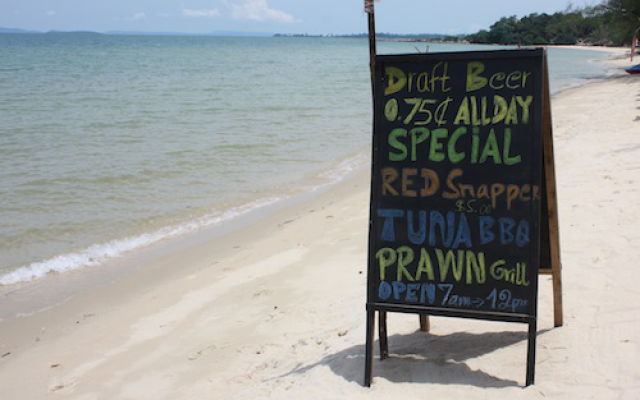 Draft Beer
0.75¢ ALL DAY
SPECIAL
RED Snapper
$5.00
TUNA BBQ
PRAWN Grill
OPEN 7am→12pm